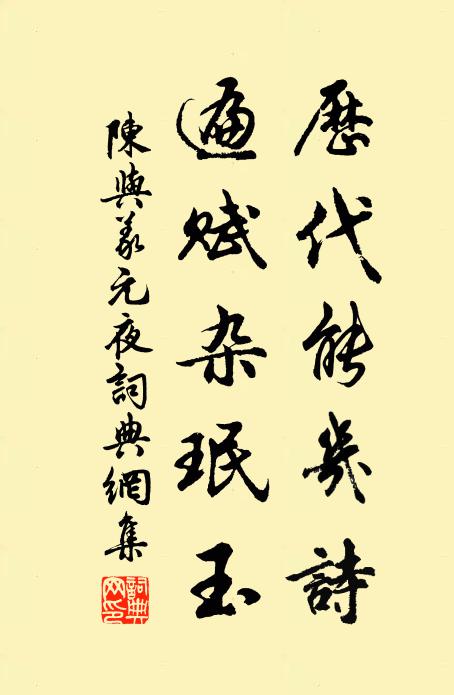 歷代能幾詩
遍賦杂珉玉
陳與義元夜詞典網集
詞典网印